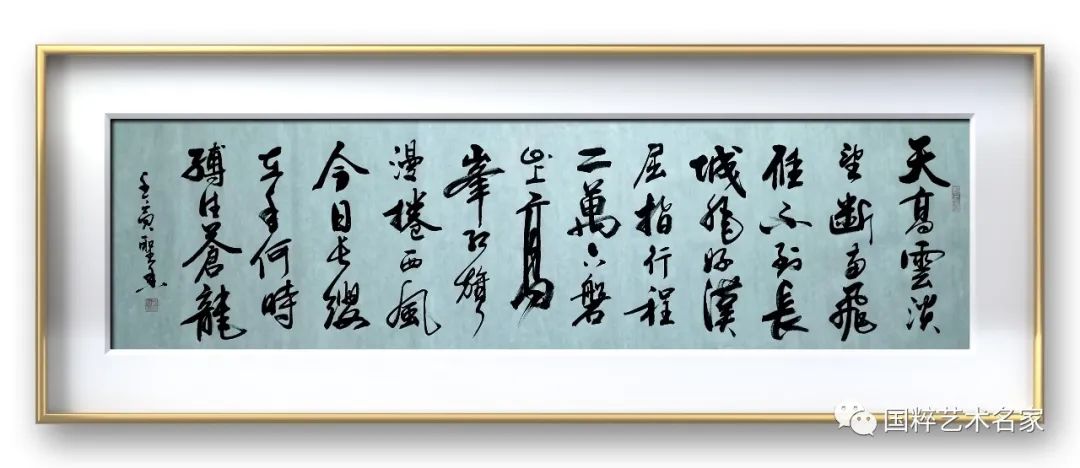 天高雲淡
望斷南飛
雁不到長
城非好漢
屈指行程
二萬六盤
山上高
峯紅旗
漫捲西風
今日長纓
在手何時
縛住蒼龍
壬寅聖
国粹艺术名家